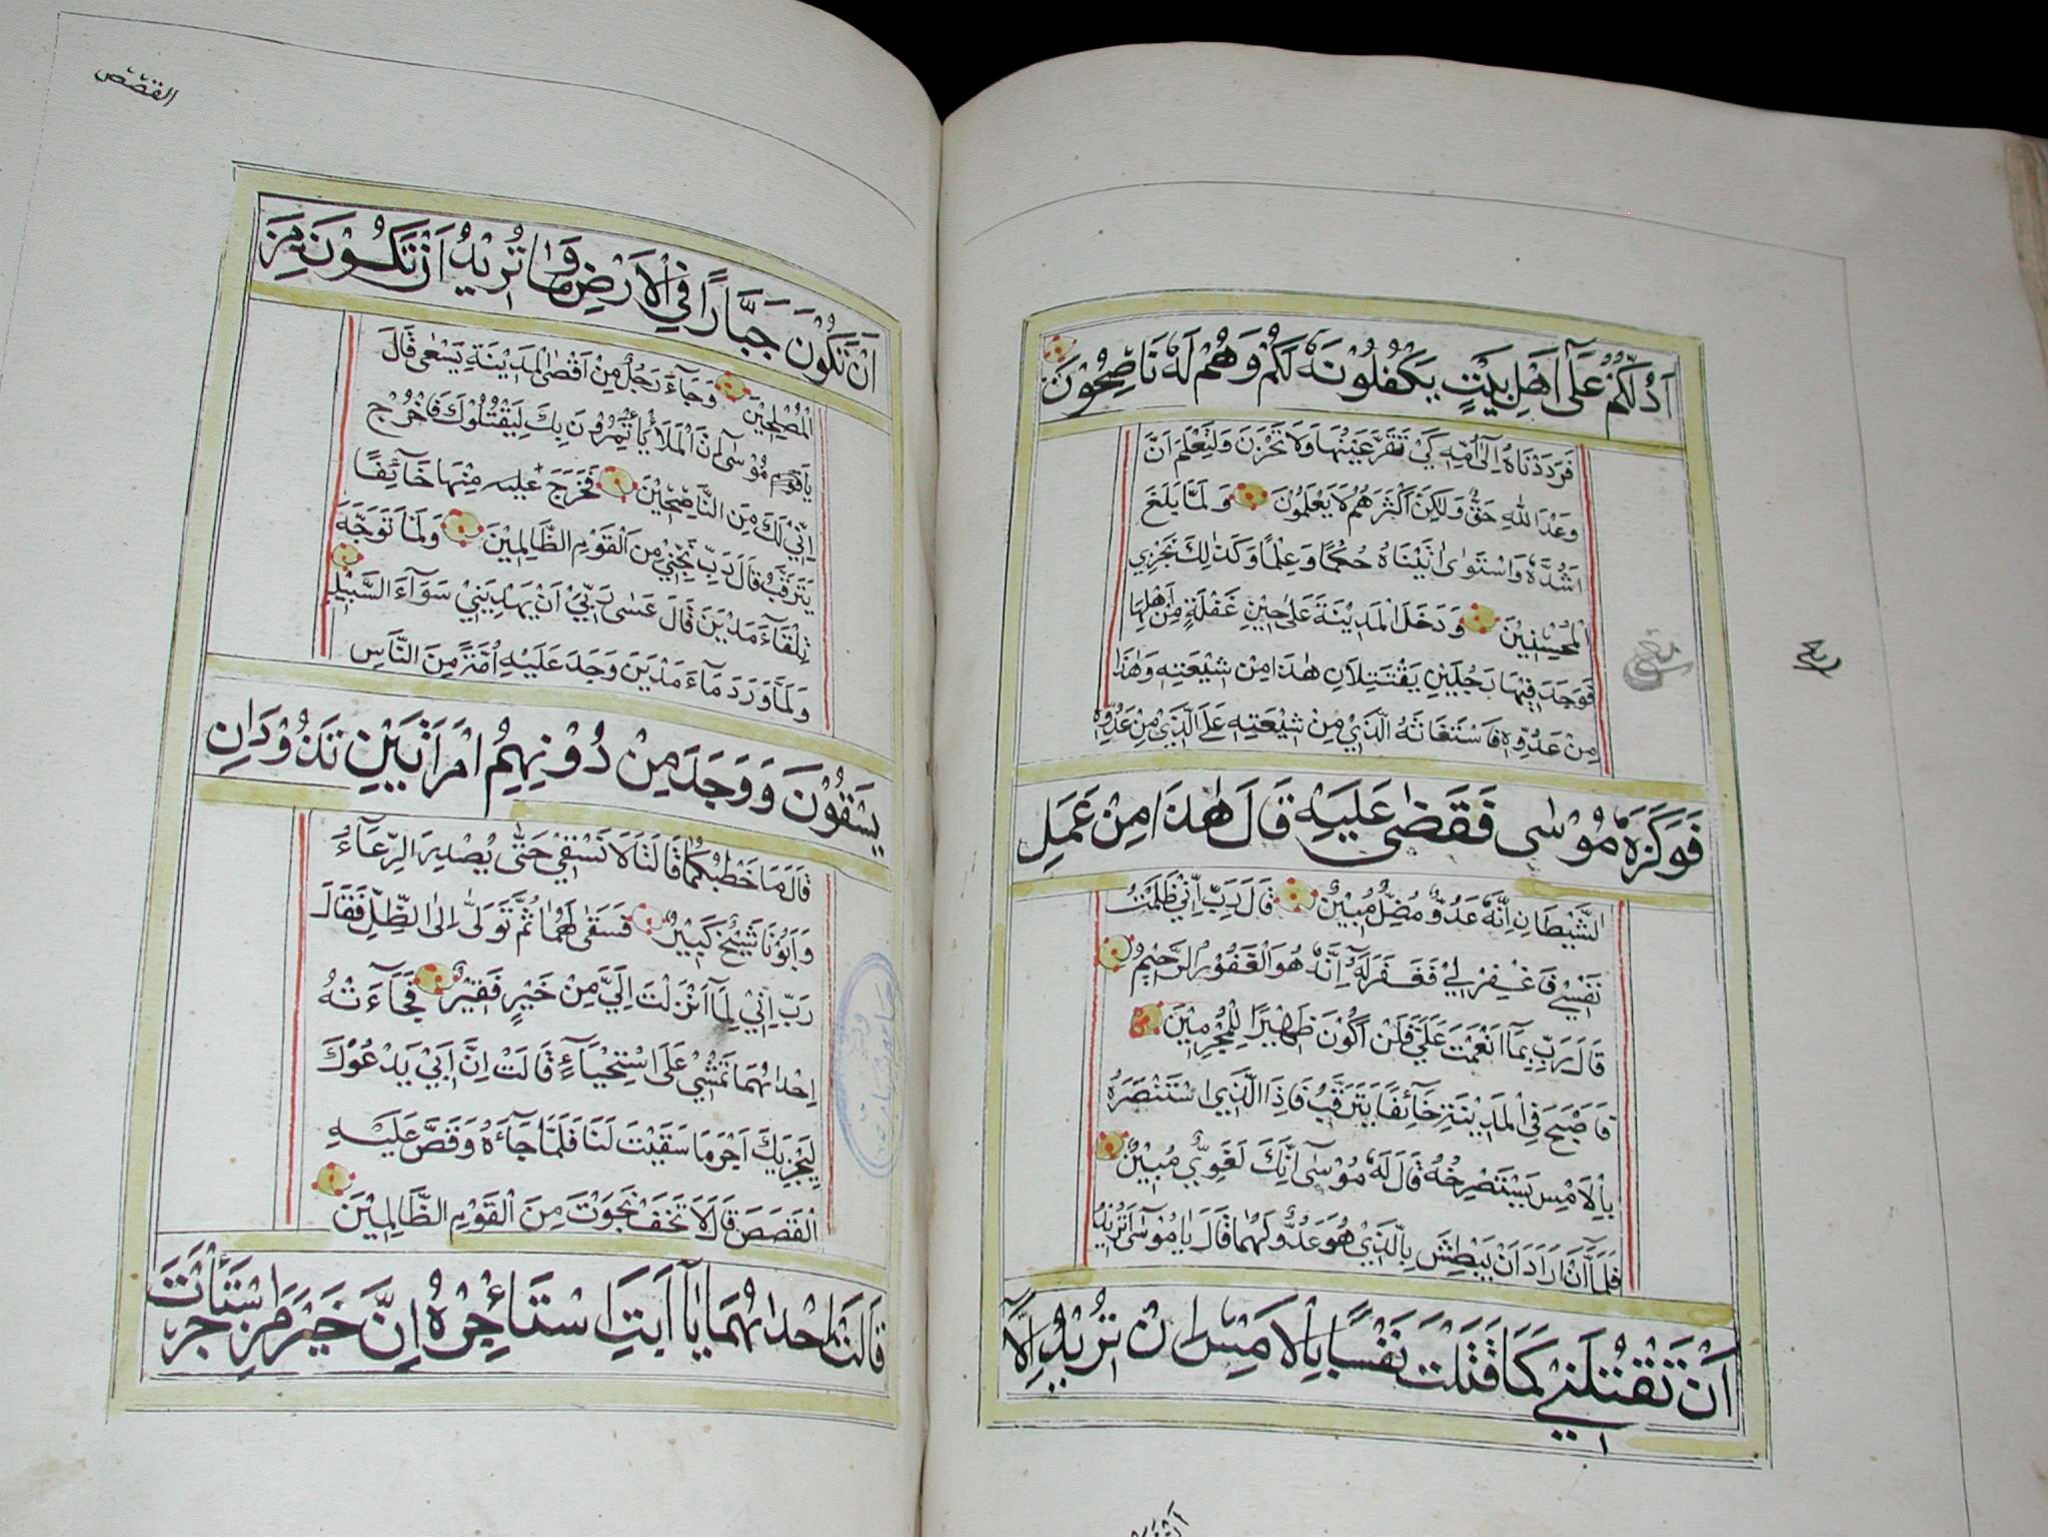 اَدُلُّكُمْ عَلٰٓى اَهْلِ بَيْتٍ يَكْفُلُوْنَهٗ لَكُمْ وَهُمْ لَهٗ نَاصِحُوْنَ
فَرَدَدْنَاهُ اِلٰٓى اُمِّهٖ كَيْ تَقَرَّ عَيْنُهَا وَلَا تَحْزَنَ وَلِتَعْلَمَ اَنَّ
وَعْدَ اللّٰهِ حَقٌّ وَلٰكِنَّ اَكْثَرَهُمْ لَا يَعْلَمُوْنَ وَلَمَّا بَلَغَ
اَشُدَّهٗ وَاسْتَوٰىٓ اٰتَيْنَاهُ حُكْمًا وَعِلْمًا وَكَذٰلِكَ نَجْزِي
الْمُحْسِنِيْنَ وَدَخَلَ الْمَدِيْنَةَ عَلٰى حِيْنِ غَفْلَةٍ مِنْ اَهْلِهَا
فَوَجَدَ فِيْهَا رَجُلَيْنِ يَقْتَتِلَانِ هٰذَا مِنْ شِيْعَتِهٖ وَهٰذَا
مِنْ عَدُوِّهٖ فَاسْتَغَاثَهُ الَّذِيْ مِنْ شِيْعَتِهٖ عَلَى الَّذِيْ مِنْ عَدُوِّهٖ
فَوَكَزَهٗ مُوْسٰى فَقَضٰى عَلَيْهِ قَالَ هٰذَا مِنْ عَمَلِ
الشَّيْطَانِ اِنَّهٗ عَدُوٌّ مُضِلٌّ مُبِيْنٌ قَالَ رَبِّ اِنِّيْ ظَلَمْتُ
نَفْسِيْ فَاغْفِرْ لِيْ فَغَفَرَ لَهٗٓ اِنَّهٗ هُوَ الْغَفُوْرُ الرَّحِيْمُ
قَالَ رَبِّ بِمَآ اَنْعَمْتَ عَلَيَّ فَلَنْ اَكُوْنَ ظَهِيْرًا لِلْمُجْرِمِيْنَ
فَاَصْبَحَ فِي الْمَدِيْنَةِ خَآئِفًا يَتَرَقَّبُ فَاِذَا الَّذِي اسْتَنْصَرَهٗ
بِالْاَمْسِ يَسْتَصْرِخُهٗ قَالَ لَهٗ مُوْسٰٓى اِنَّكَ لَغَوِيٌّ مُبِيْنٌ
فَلَمَّآ اَنْ اَرَادَ اَنْ يَبْطِشَ بِالَّذِيْ هُوَ عَدُوٌّ لَهُمَا قَالَ يَامُوْسٰٓى اَتُرِيْدُ
اَنْ تَقْتُلَنِيْ كَمَا قَتَلْتَ نَفْسًا بِالْاَمْسِ اِنْ تُرِيْدُ اِلَّآ
القصص
اَنْ تَكُوْنَ جَبَّارًا فِي الْاَرْضِ وَمَا تُرِيْدُ اَنْ تَكُوْنَ مِنَ
الْمُصْلِحِيْنَ وَجَآءَ رَجُلٌ مِنْ اَقْصَا الْمَدِيْنَةِ يَسْعٰى قَالَ
يَا مُوْسٰٓى اِنَّ الْمَلَاَ يَأْتَمِرُوْنَ بِكَ لِيَقْتُلُوْكَ فَاخْرُجْ
اِنِّيْ لَكَ مِنَ النَّاصِحِيْنَ فَخَرَجَ مِنْهَا خَآئِفًا
يَتَرَقَّبُ قَالَ رَبِّ نَجِّنِيْ مِنَ الْقَوْمِ الظَّالِمِيْنَ وَلَمَّا تَوَجَّهَ
تِلْقَآءَ مَدْيَنَ قَالَ عَسٰى رَبِّيْٓ اَنْ يَهْدِيَنِيْ سَوَآءَ السَّبِيْلِ
وَلَمَّا وَرَدَ مَآءَ مَدْيَنَ وَجَدَ عَلَيْهِ اُمَّةً مِنَ النَّاسِ
يَسْقُوْنَ وَوَجَدَ مِنْ دُوْنِهِمُ امْرَاَتَيْنِ تَذُوْدَانِ
قَالَ مَا خَطْبُكُمَا قَالَتَا لَا نَسْقِيْ حَتّٰى يُصْدِرَ الرِّعَآءُ
وَاَبُوْنَا شَيْخٌ كَبِيْرٌ فَسَقٰى لَهُمَا ثُمَّ تَوَلّٰى اِلَى الظِّلِّ فَقَالَ
رَبِّ اِنِّيْ لِمَآ اَنْزَلْتَ اِلَيَّ مِنْ خَيْرٍ فَقِيْرٌ فَجَآءَتْهُ
اِحْدٰىهُمَا تَمْشِيْ عَلَى اسْتِحْيَآءٍ قَالَتْ اِنَّ اَبِيْ يَدْعُوْكَ
لِيَجْزِيَكَ اَجْرَ مَا سَقَيْتَ لَنَا فَلَمَّا جَآءَهٗ وَقَصَّ عَلَيْهِ
الْقَصَصَ قَالَ لَا تَخَفْ نَجَوْتَ مِنَ الْقَوْمِ الظَّالِمِيْنَ
قَالَتْ اِحْدٰىهُمَا يَآ اَبَتِ اسْتَأْجِرْهُ اِنَّ خَيْرَ مَنِ اسْتَأْجَرْتَ